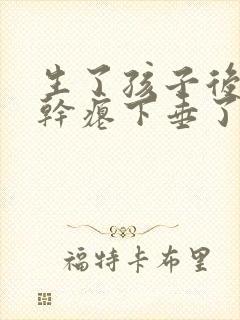 生了孩子後
幹癟下垂了
福特卡布里